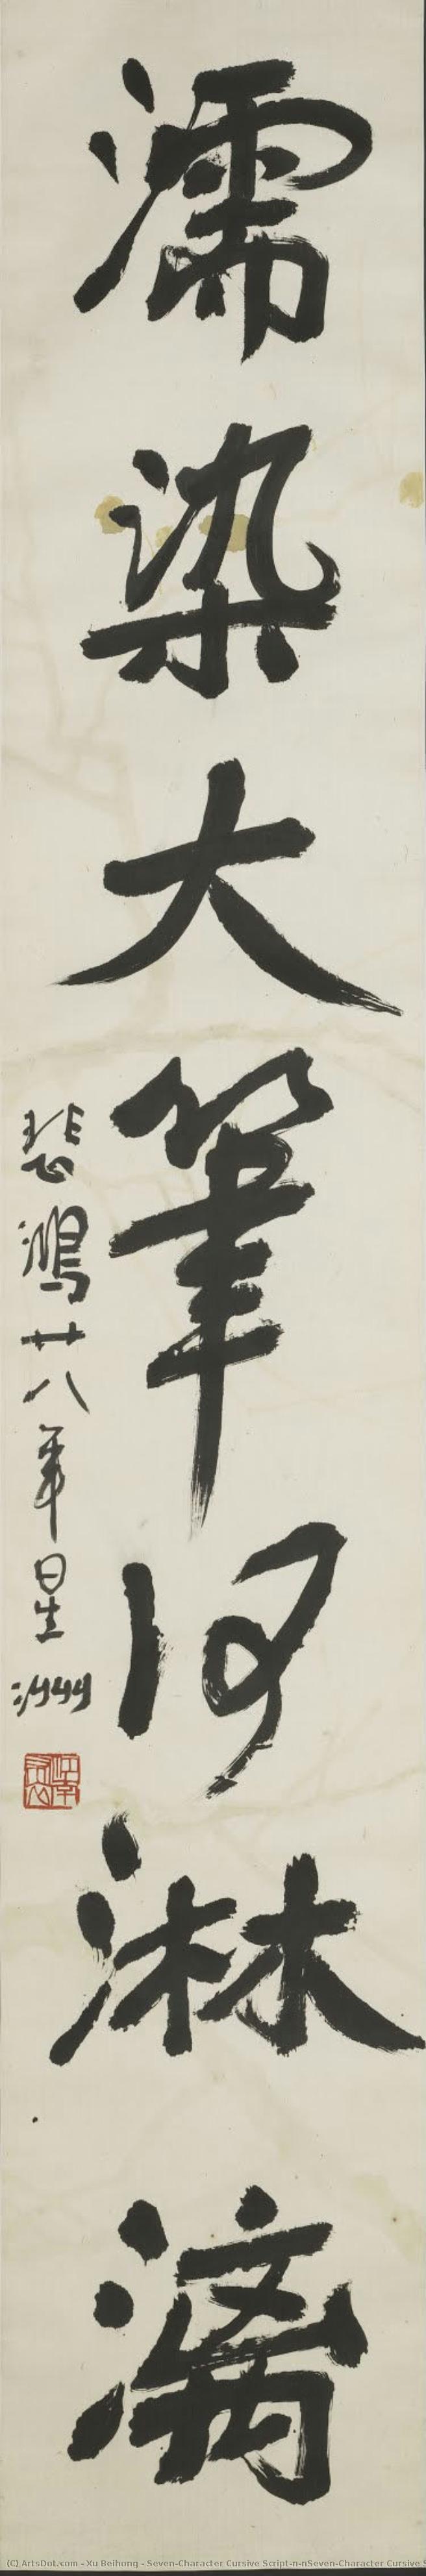 濡染大筆何淋漓
悲鴻廿八年星洲
(C) ArtsDot.com - Xu Beihong - Seven-Character Cursive Script-n-nSeven-Character Cursive S